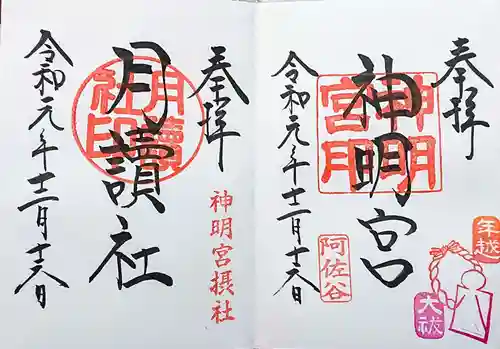 奉拝
神明宮
神明宮印
阿佐谷
令和元年十二月十六日
年越
大祓
奉拝
月讀社
月讀社印
神明宮摂社
令和元年十二月十六日